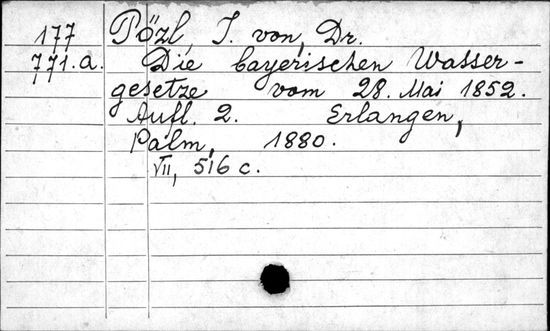 177 Pözl J. von, Dr.
771.a. Die bayerischen Wasser-
gesetze vom 28. Mai 1852.
Aufl. 2. Erlangen,
Palm, 1880.
VII, 516 c.